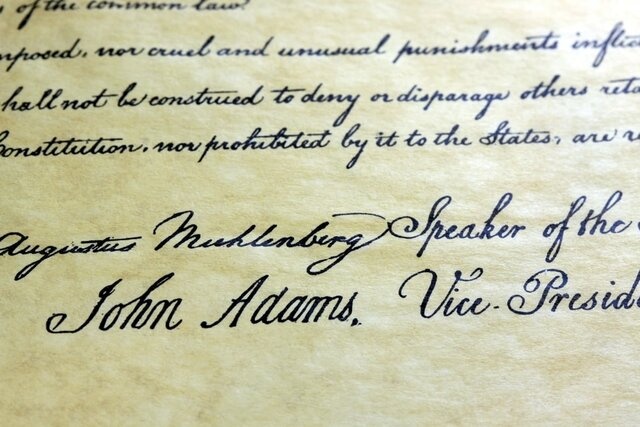 of the common law.
mposed, nor cruel and unusual punishments inflic
shall not be construed to deny or disparage others reta
Constitution, nor prohibited by it to the States, are re
Augustus Muhlenberg Speaker of the
John Adams, Vice-Presid